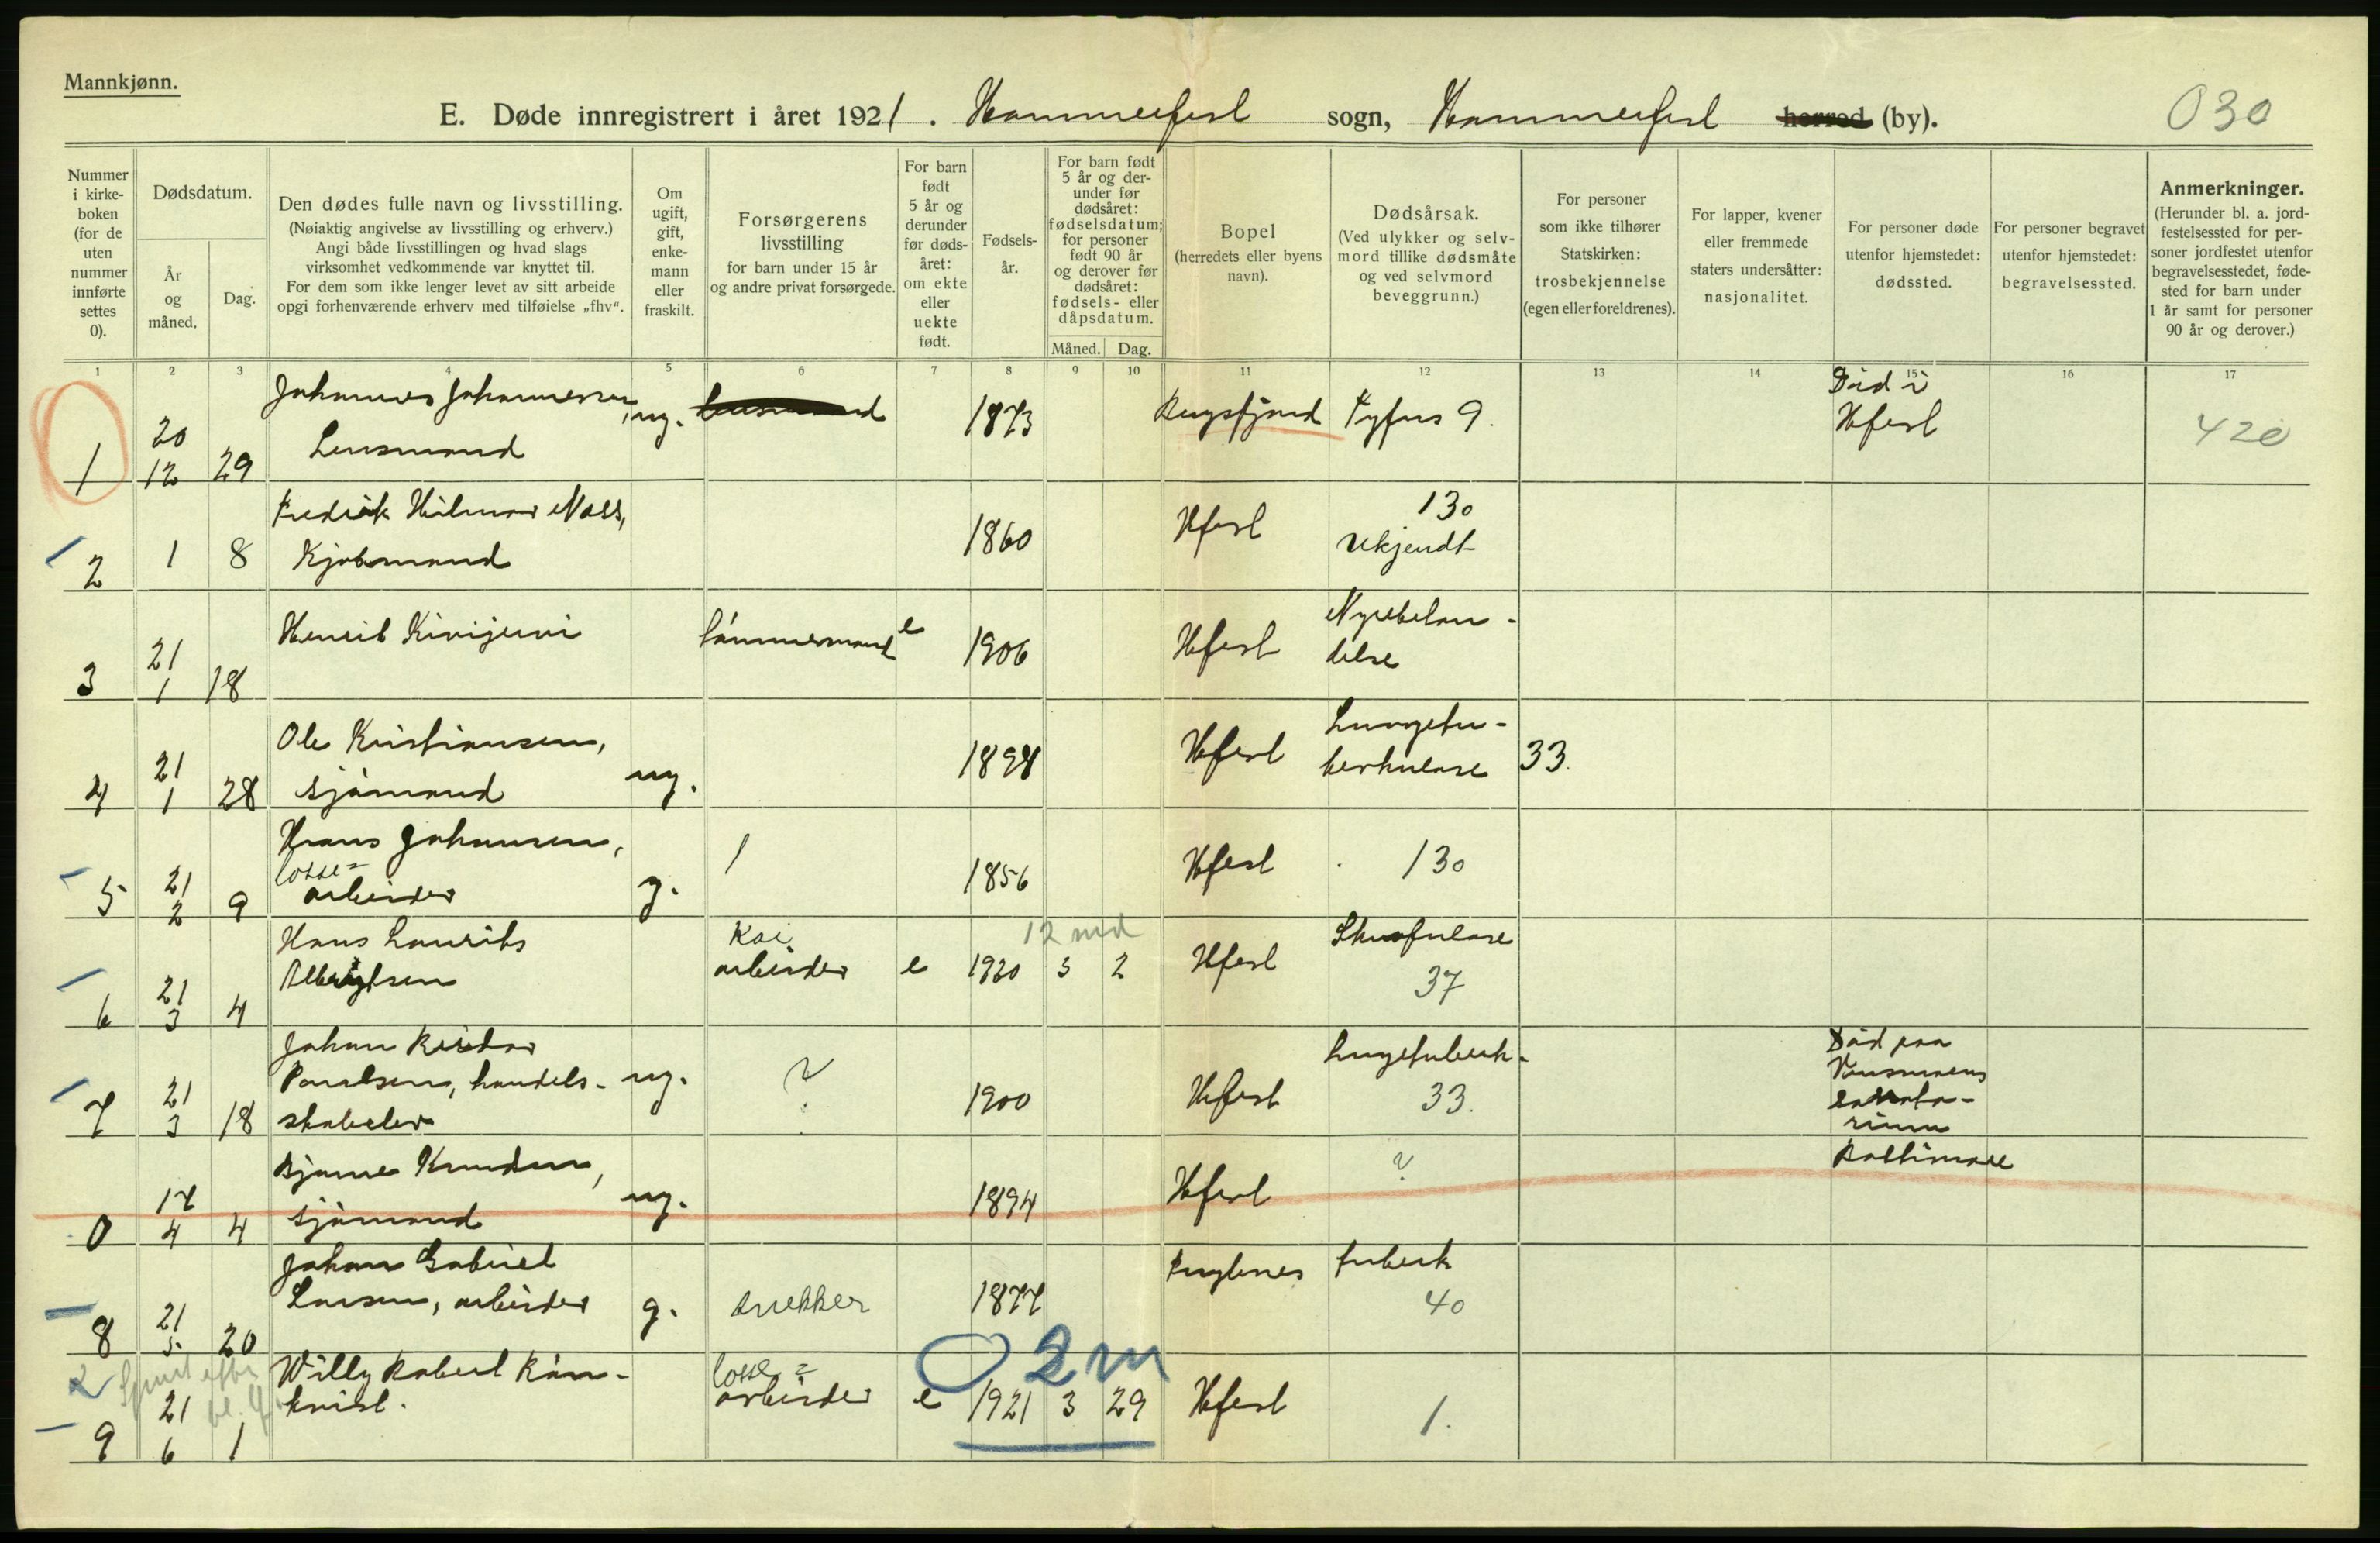 Mannkjønn.
E. Døde innregistrert i året 1921. Hammerfest sogn, Hammerfest herred (by).
030
Nummer i kirke-boken (for de uten nummer innførte settes 0).
Dødsdatum.
År og måned.
Dag.
Den dødes fulle navn og livsstilling.
(Nøiaktig angivelse av livsstilling og erhverv.)
Angi både livsstillingen og hvad slags
virksomhet vedkommende var knyttet til.
For dem som ikke lenger levet av sitt arbeide
opgi forhenværende erhverv med tilføielse „fhv“.
Om ugift, gift, enke-mann eller fraskilt.
Forsørgerens
livsstilling
for barn under 15 år
og andre privat forsørgede.
For barn født 5 år og derunder før døds-året: om ekte eller uekte født.
Fødsels-år.
For barn født 5 år og der-under før dødsåret: fødselsdatum; for personer født 90 år og derover før dødsåret: fødsels- eller dåpsdatum.
Måned. Dag.
Bopel
(herredets eller byens navn).
Dødsårsak.
(Ved ulykker og selv-mord tillike dødsmåte og ved selvmord beveggrunn.)
For personer som ikke tilhører Statskirken: trosbekjennelse (egen eller foreldrenes).
For lapper, kvener eller fremmede staters undersåtter: nasjonalitet.
For personer døde utenfor hjemstedet: dødssted.
For personer begravet utenfor hjemstedet: begravelsessted.
Anmerkninger.
(Herunder bl. a. jord-festelsessted for per-soner jordfestet utenfor begravelsesstedet, føde-sted for barn under 1 år samt for personer 90 år og derover.)
1 2 3 4 5 6 7 8 9 10 11 12 13 14 15 16 17
1 20 12 29 Johannes Johannesen, Lensmand ug. 1873 Tyfus 9. Død i Hfest 420
2 1 8 Fredrik Hilmar Næss, Kjøbmand 1860 Hfest 130 Ukjendt
3 21 1 18 Henrik Kivijervi tømmermand e 1906 Hfest Nyrebetæn-delse
4 21 1 28 Ole Kristiansen, sjømand ug. 1898 Hfest Lungetu-berkulose 33.
5 21 2 9 Hans Johansen, losse=arbeider g. 1 1856 Hfest 130
6 21 3 4 Hans Laurits Albrigtsen Kai arbeider e 1920 3 2 12 md Hfest Skrofulose 37
7 21 3 18 Johan Reidar Paulsen, handels-skoleelev ug. ? 1900 Hfest Lungetuberk. 33. Død paa sanato-rium
0 17 4 4 Bjarne Knudsen, sjømand ug. 1894 Hfest ? Baltimore
8 21 5 20 Johan Gabriel Larsen, arbeider g. snekker 1877 Fuglenes tuberk 40
9 21 6 1 Willy Robert Røn-kvist. losse=arbeider e 1921 3 29 0 2 m Hfest 1.